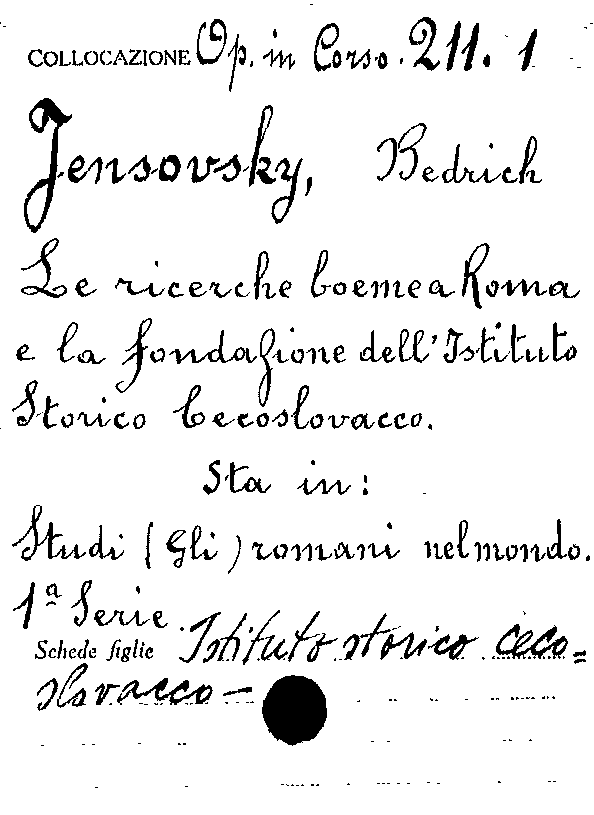 COLLOCAZIONE Op. in Corso. 211. 1
Jensovsky, Bedrich
Le ricerche boeme a Roma
e la fondazione dell'Istituto
Storico Cecoslovacco.
Sta in:
Studi (Gli) romani nel mondo.
1ª Serie.
Schede figlie Istituto storico ceco=
slovacco —